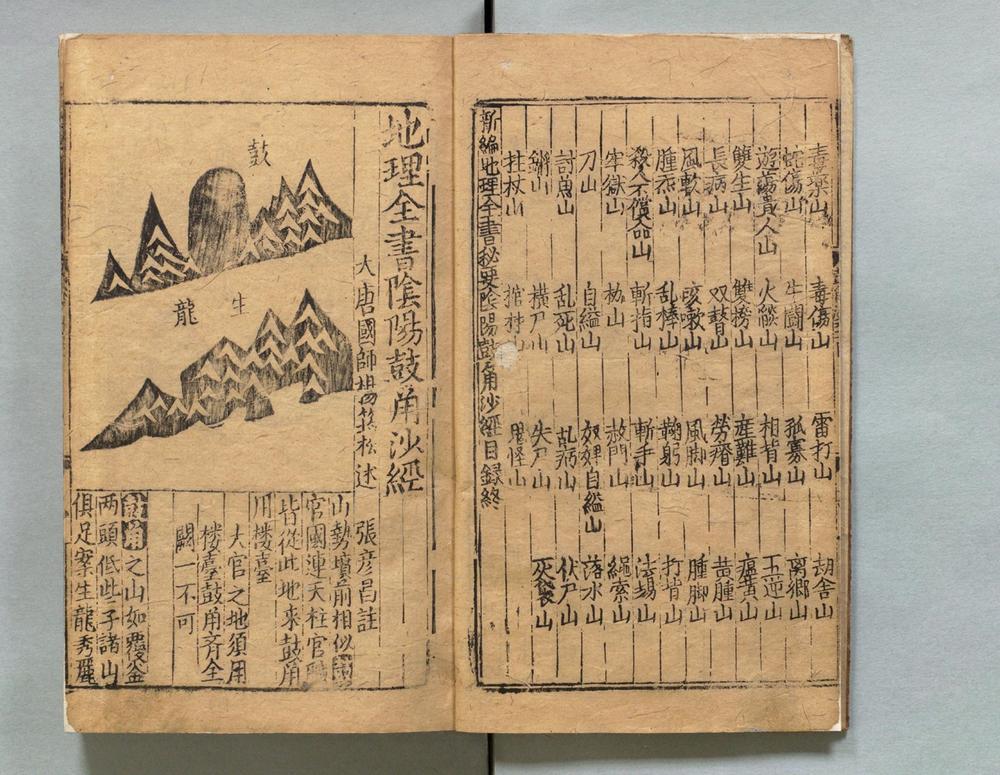 毒藥山 毒傷山 雷打山 刼舍山
蛇傷山 牛鬪山 孤寡山 离鄉山
遊蕩貴人山 火燄山 相背山 五逆山
雙生山 雙搒山 産難山 瘟黄山
長病山 双瞽山 勞瘵山 黄腫山
山 咳嗽山 風脚山 腫脚山
腫山 乱棒山 鞠躬山 打背山
殺人不償命山 斬指山 斬手山 法場山
牢獄山 枷山 赦門山 繩索山
刀山 自縊山 奴婢自縊山 落水山
山 乱死山 乱山 伏尸山
山 橫尸山 失尸山 灰袋山
拄杖山 棺材山 鬼怪山
新編地理全書秘要陰陽鼓角沙經目録終
地理全書陰陽鼓角沙經
大唐國師楊筠松述
張彦昌註
鼓
生
龍
山勢墳前相似
官國連天柱官職
皆從此地来鼓角
用楼臺
大官之地須用
楼臺鼓角齐全
闕一不可
角之山如覆釜
两頭低些子諸山
俱足案生龍秀麗